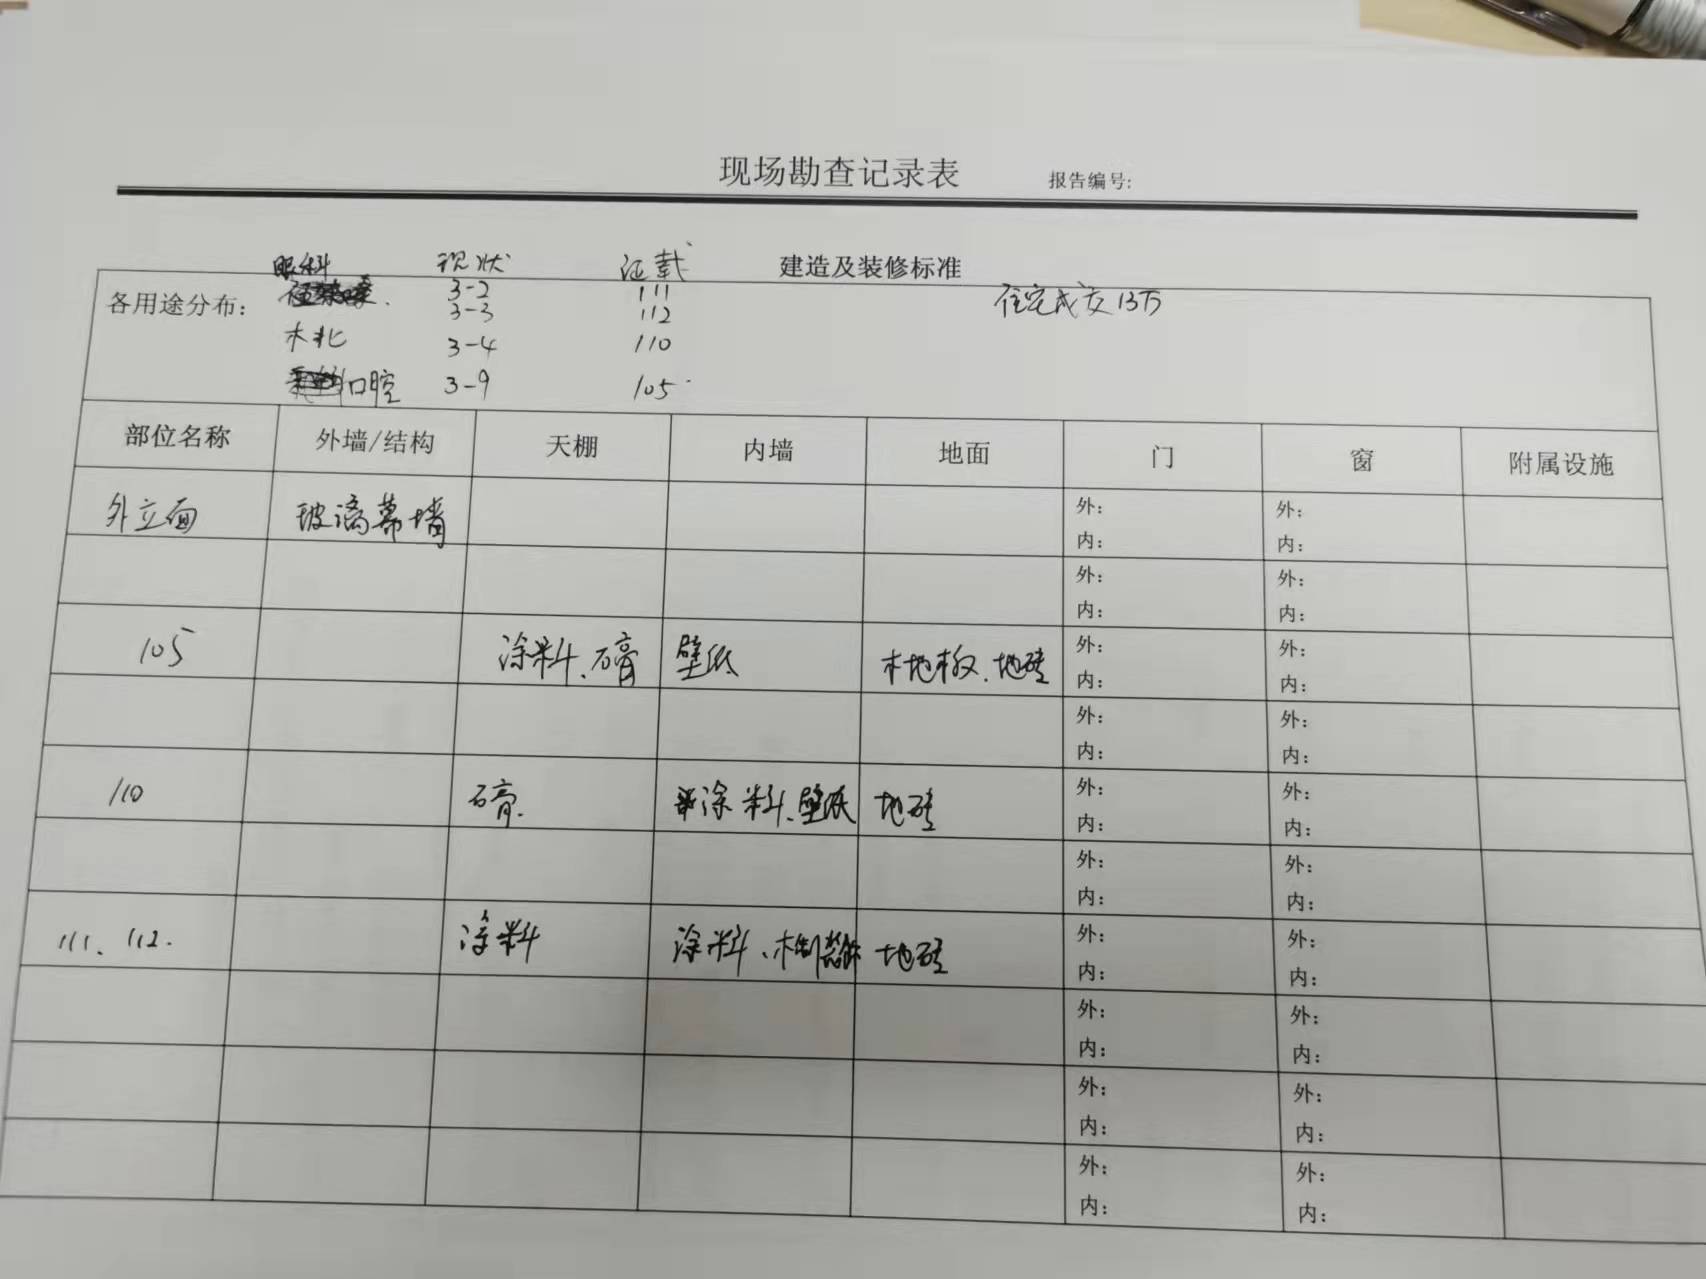 现场勘查记录表 报告编号:
眼科 现状 证载 建造及装修标准
各用途分布: 3-2 111 住宅成交13万
3-3 112
木北 3-4 110
口腔 3-9 105
部位名称 外墙/结构 天棚 内墙 地面 门 窗 附属设施
外立面 玻璃幕墙 外: 外:
内: 内:
外: 外:
内: 内:
105 涂料、石膏 壁纸 木地板、地砖 外: 外:
内: 内:
外: 外:
内: 内:
110 石膏 涂料、壁纸 地砖 外: 外:
内: 内:
外: 外:
内: 内:
111、112. 涂料 涂料、木制 地砖 外: 外:
内: 内:
外: 外:
内: 内:
外: 外:
内: 内:
外: 外:
内: 内: